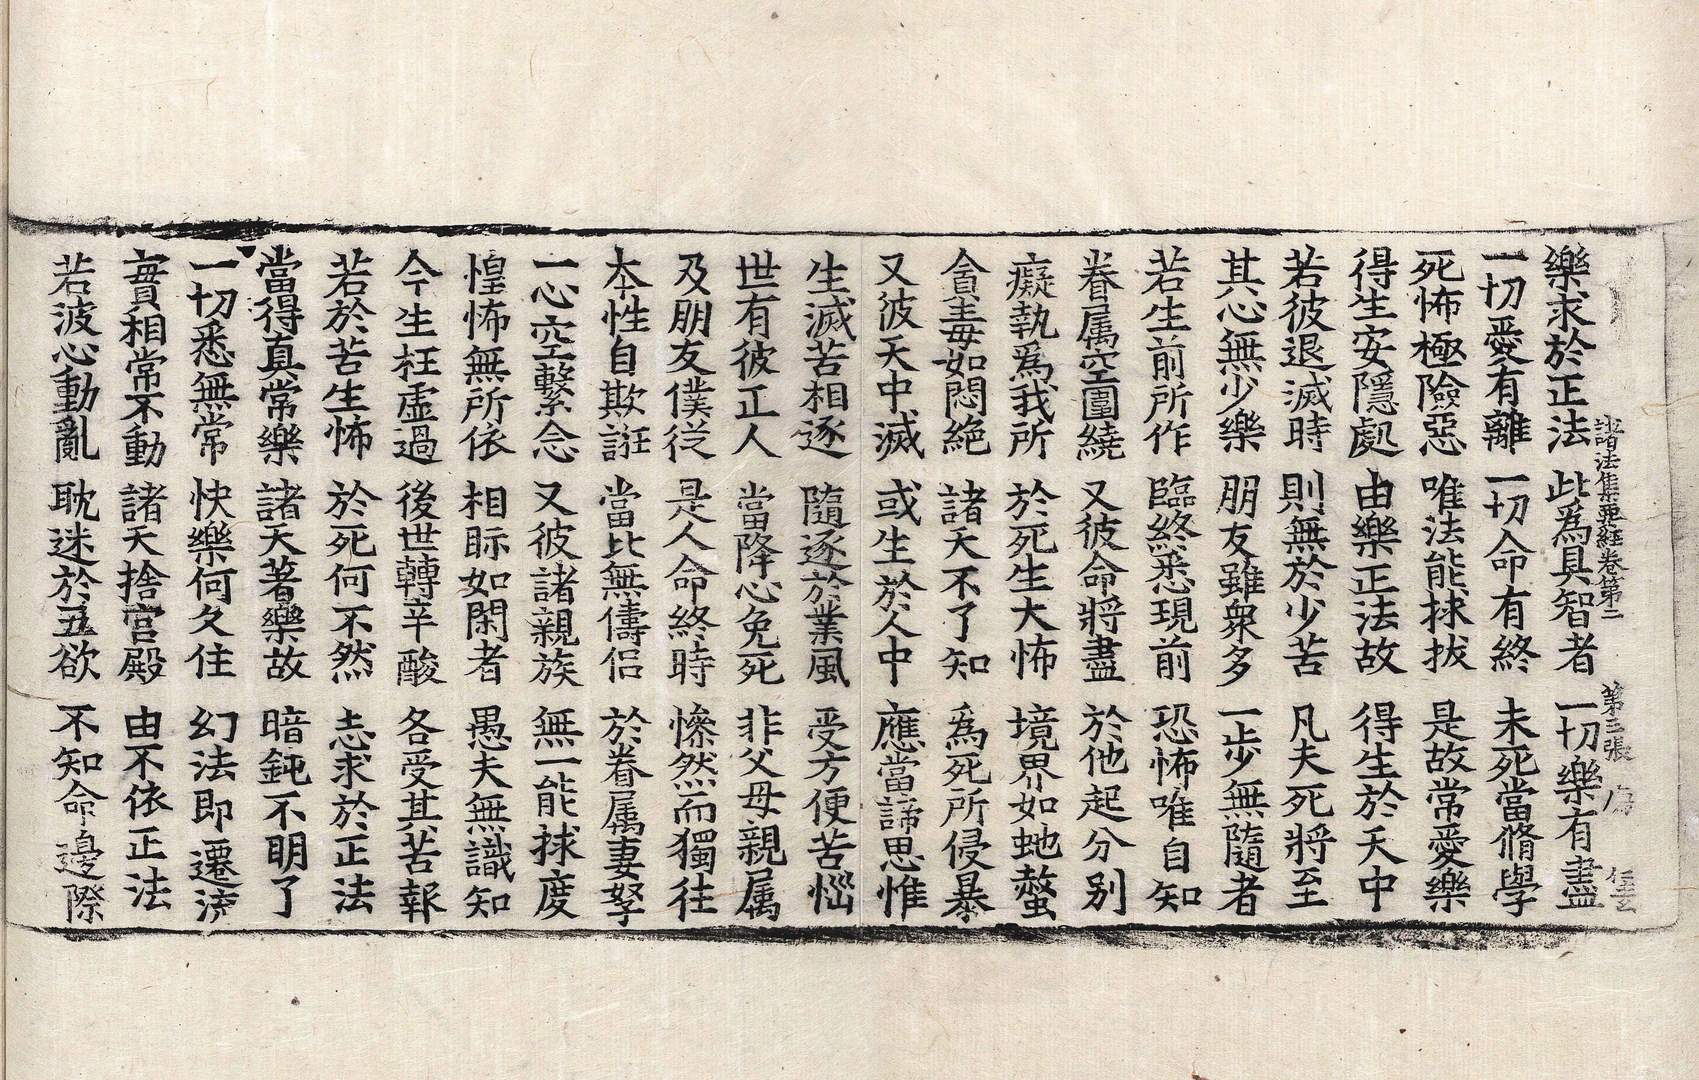 諸法集要經卷第二 第三張
樂求於正法 此為具智者 一切樂有盡
一切愛有離 一切命有終 未死當脩學
死怖極險惡 唯法能捄拔 是故常愛樂
得生安隱處 由樂正法故 得生於天中
若彼退滅時 則無於少苦 凡夫死將至
其心無少樂 朋友雖衆多 一步無隨者
若生前所作 臨終悉現前 恐怖唯自知
眷属空圍繞 又彼命將盡 於他起分别
癡執為我所 於死生大怖 境界如虵螫
貪毒如悶絶 諸天不了知 為死所侵暴
又彼天中滅 或生於人中 應當諦思惟
生滅苦相逐 隨逐於業風 受方便苦惱
世有彼正人 當降心免死 非父母親属
及朋友僕從 是人命終時 慘然而獨往
本性自欺誑 當比無儔侣 於眷属妻孥
一心空繫念 又彼諸親族 無一能捄度
惶怖無所依 相眎如閑者 愚夫無識知
今生枉虛過 後世轉辛酸 各受其苦報
若於苦生怖 於死何不然 志求於正法
當得真常樂 諸天著樂故 暗鈍不明了
一切悉無常 快樂何久住 幻法即遷流
實相常不動 諸天捨宫殿 由不依正法
若波心動亂 耽迷於五欲 不知命邊際